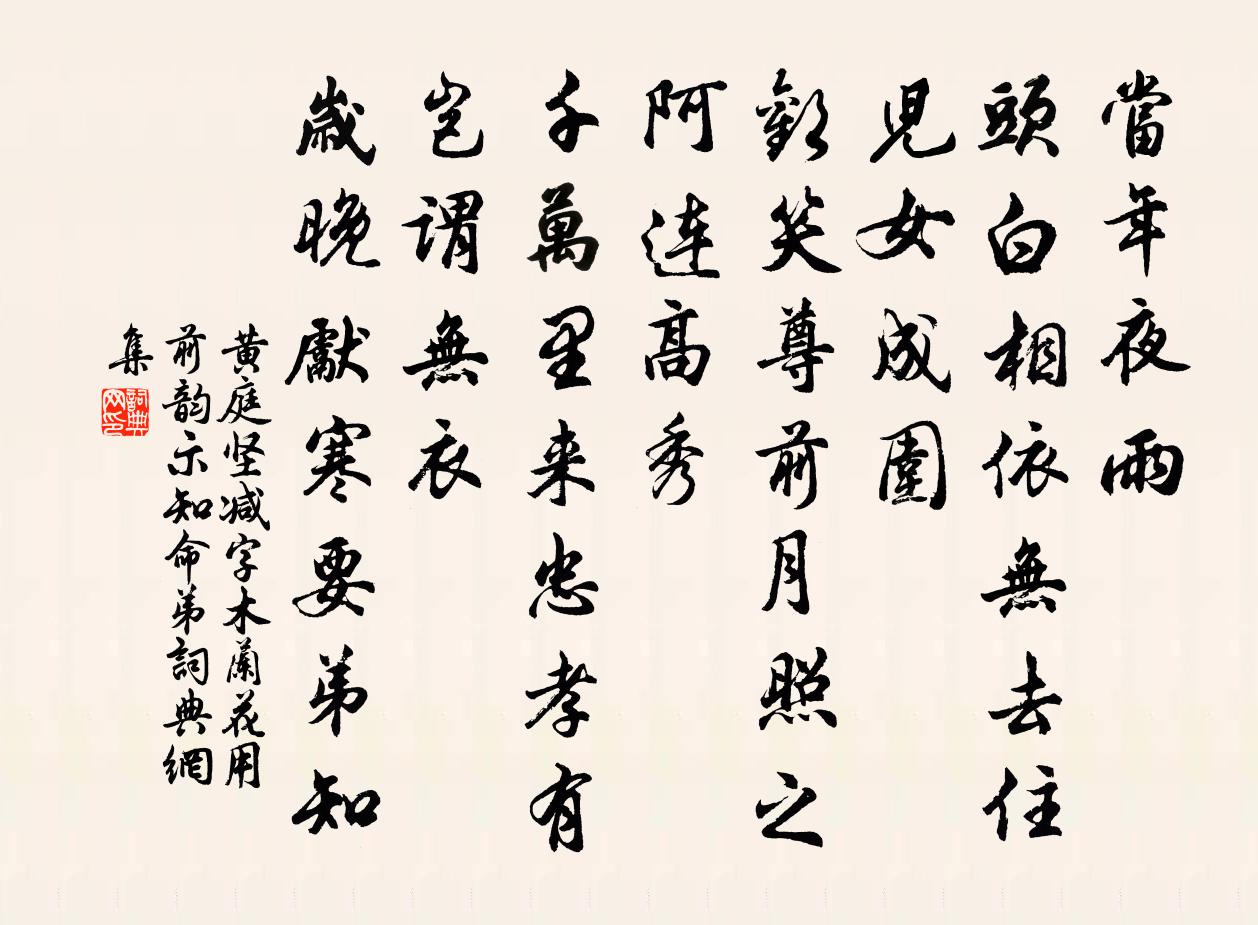 當年夜雨
頭白相依無去住
兒女成圍
歡笑尊前月照之
阿連高秀
千萬里來忠孝有
豈謂無衣
歲晚獻寒要弟知
黄庭坚减字木蘭花用
前韵示知命弟詞典網
集
詞典
网印